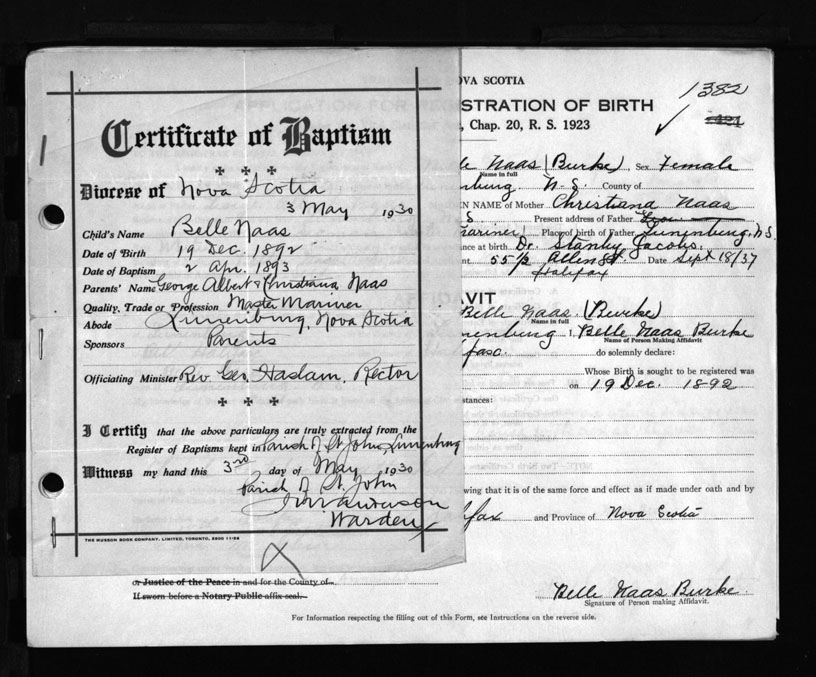 Certificate of Baptism
Diocese of Nova Scotia
3 May 1930
Child's Name Belle Naas
Date of Birth 19 Dec. 1892
Date of Baptism 2 Apr. 1893
Parents' Name George Albert & Christiana Naas
Quality, Trade or Profession Master Mariner
Abode Lunenburg, Nova Scotia
Sponsors Parents
Officiating Minister Rev. Geo. Haslam, Rector
I Certify that the above particulars are truly extracted from the
Register of Baptisms kept in Parish of St John, Lunenburg
Witness my hand this 3rd day of May 1930
Parish of St. John
Warden
THE MUSSON BOOK COMPANY, LIMITED, TORONTO,
OVA SCOTIA
1382
STRATION OF BIRTH
, Chap. 20, R. S. 1923
lle Naas (Burke), Sex Female
Name in full
nburg. N. S. County of
EN NAME of Mother Christiana Naas
S Present address of Father
Mariner) Place of birth of Father Lunenburg, N.S.
nce at birth Dr. Stanly Jacobs.
nt 55½ Allen St. Date Sept 18/37
Halifax
AVIT
Belle Naas. (Burke)
Name in full
nenburg I, Belle Naas Burke
Name of Person Making Affidavit
fax. do solemnly declare:
Whose Birth is sought to be registered was
on 19 Dec. 1892
stances:
wing that it is of the same force and effect as if made under oath and by
fax and Province of Nova Scotia
or Justice of the Peace in and for the County of
If sworn before a Notary Public affix seal.
Belle Naas Burke
Signature of Person making Affidavit.
For Information respecting the filling out of this Form, see Instructions on the reverse side.